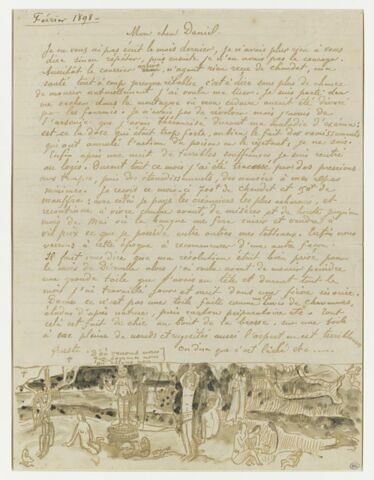 Février 1898 -
Mon cher Daniel.
Je ne vous ai pas écrit le mois dernier, je n'avais plus rien à vous
dire sinon répéter, puis ensuite je n'en avais pas le courage.
Aussitôt le courrier arrivé, n'ayant rien reçu de Chaudet, ma
santé tout à coup presque rétablie c'est-à-dire sans plus de chance
de mourir naturellement j'ai voulu me tuer. Je suis parti
me cacher dans la montagne où mon cadavre aurait été dévoré
par les fourmis. Je n'avais pas de révolver mais j'avais de
l'arsenic que j'avais thésaurisé durant ma maladie d'eczéma:
est-ce la dose qui était trop forte, ou bien le fait des vomissements
qui ont annulé l'action du poison en le rejetant; je ne sais.
Enfin après une nuit de terribles souffrances je suis rentré
au logis. Durant tout ce mois j'ai été tracassé par des pressions
aux tempes, puis des étourdissements, des nausées à mes repas
minimes. Je reçois ce mois-ci 700f de Chaudet et 150f de
Mauffra: avec cela je paye les créanciers les plus acharnés, et
recontinue à vivre comme avant, de misères et de honte jusqu'au
mois de Mai où la banque me fera saisir et vendre à
vil prix ce que je possède entre autres mes tableaux. Enfin nous
verrons à cette époque à recommencer d'une autre façon.
Il faut vous dire que ma résolution était bien prise pour
le mois de Décembre alors j'ai voulu avant de mourir peindre
une grande toile que j'avais en tête et durant tout le
mois j'ai travaillé jour et nuit dans une fièvre inouïe.
Dame ce n'est pas une toile faite comme un Puvis de Chavannes,
études d'après nature, puis carton préparatoire etc. Tout
cela est fait de chic au bout de la brosse, sur une toile
à sac pleine de nœuds et rugosités aussi l'aspect en est terriblement
fruste.
D'où venons nous
Que sommes nous
On dira que c'est lâché etc ....